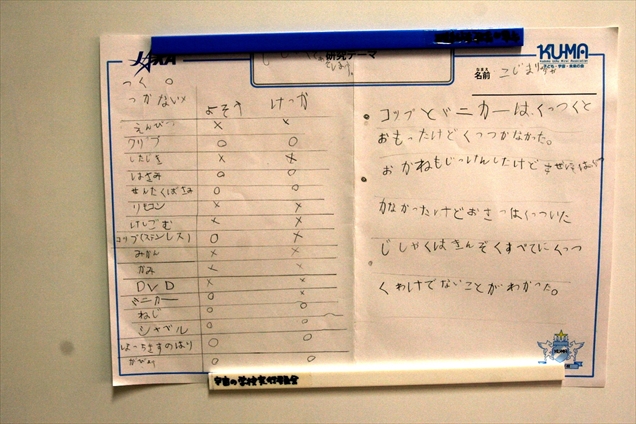 研究テーマ
KU-MA
名前
つく ○
つかない×
よそう けっか
えんぴつ × ×
クリップ ○ ○
したじき × ×
はさみ ○ ○
せんたくばさみ ○ ○
リモコン × ×
けしごむ × ×
コップ(ステンレス) ○ ×
みかん × ×
かみ × ×
DVD × ×
ミニカー ○ ×
ねじ ○ ○
シャベル ○ ○
ほっちきすのはり ○ ○
○ ○
コップとミニカーは、くっつくと
おもったけどくっつかなかった。
おかねもじっけんしたけど
かなかったけどおさつはくっついた
じしゃくはきんぞくすべてにくっつ
くわけでないことがわかった。